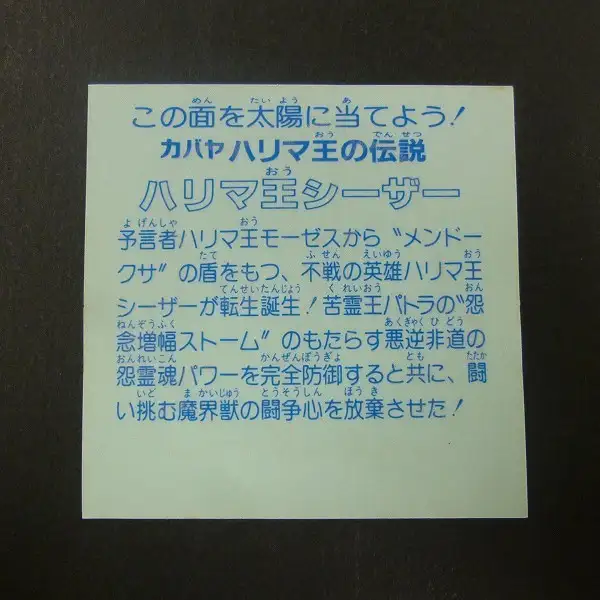 この面を太陽に当てよう!
カバヤ ハリマ王の伝説
ハリマ王シーザー
予言者ハリマ王モーゼスから〝メンドー
クサ〟の盾をもつ、不戦の英雄ハリマ王
シーザーが転生誕生!苦霊王パトラの〝怨
念増幅ストーム〟のもたらす悪逆非道の
怨霊魂パワーを完全防御すると共に、闘
い挑む魔界獣の闘争心を放棄させた!